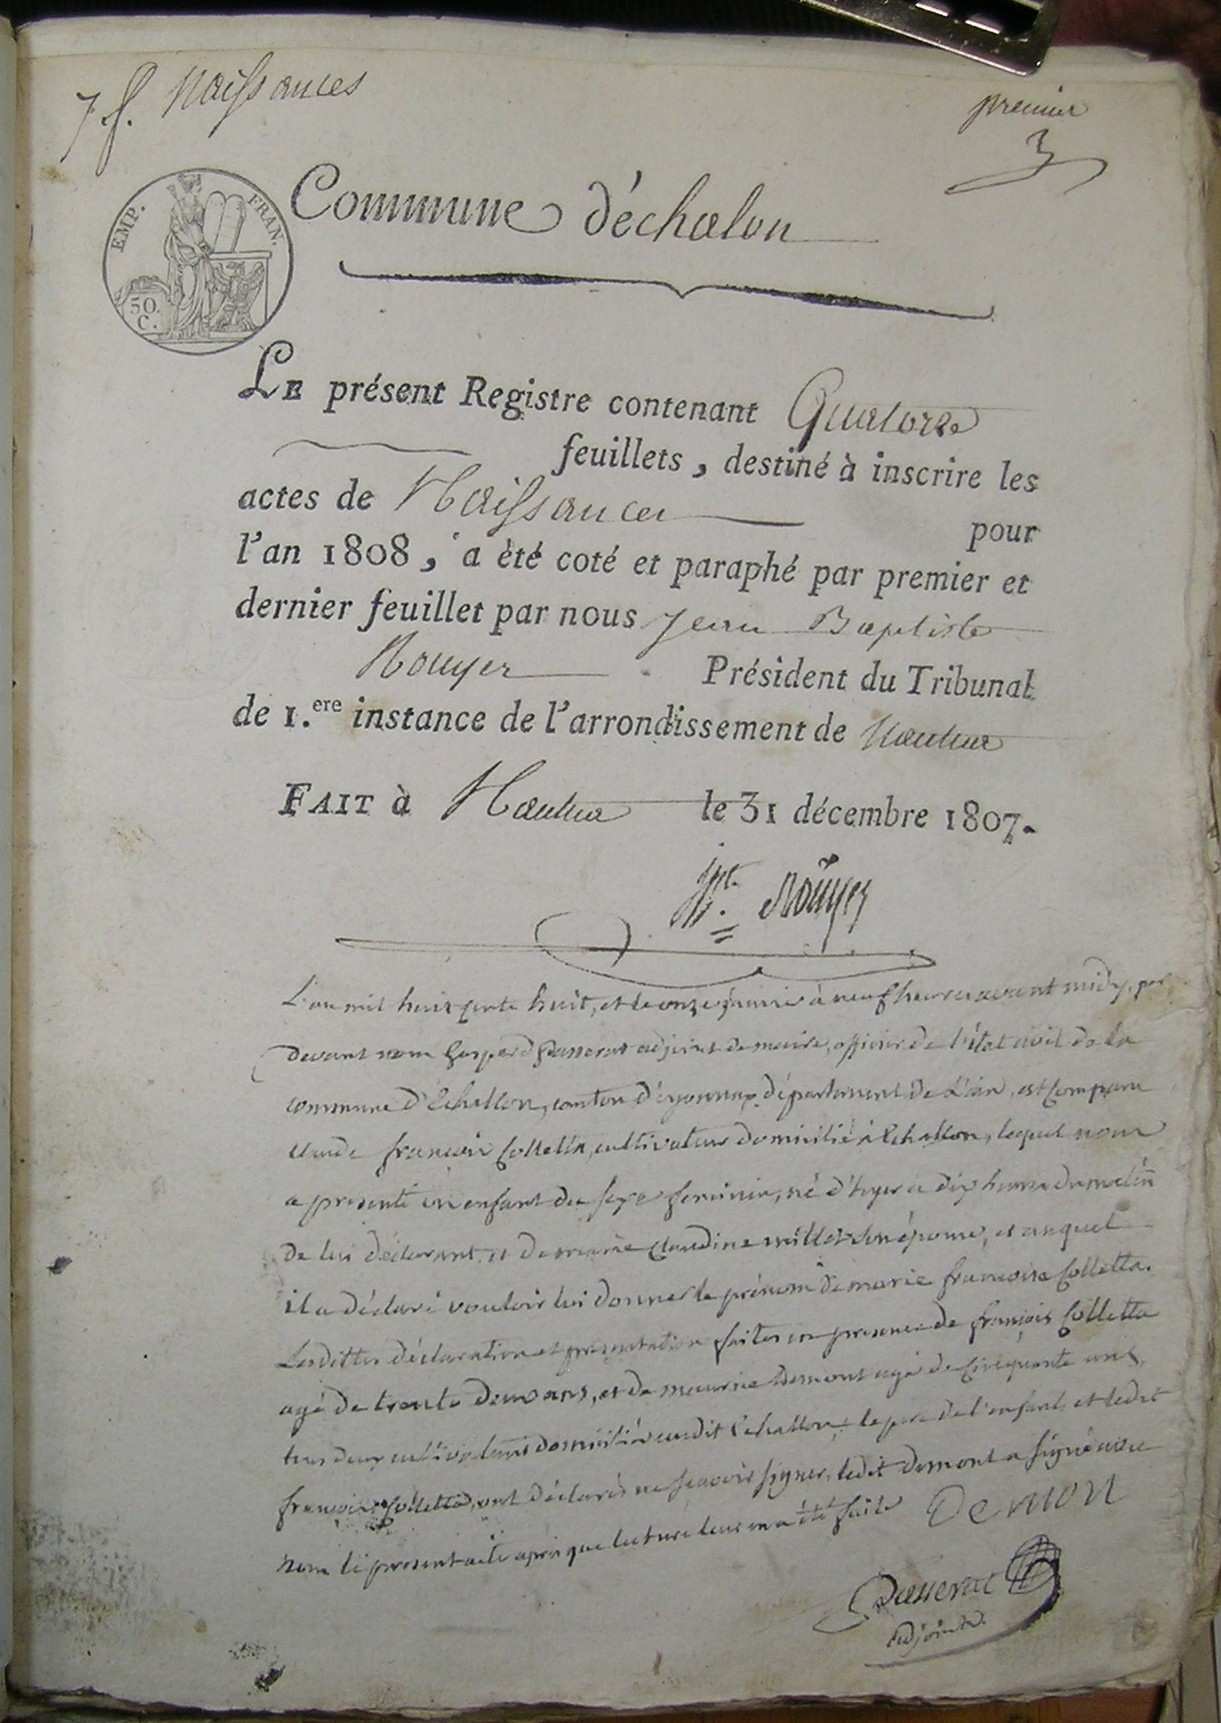 7 f. Naissances
premier
EMP. FRAN.
50. C.
Commune d'échalon
LE présent Registre contenant Quatorze
feuillets, destiné à inscrire les
actes de Naissances pour
l'an 1808, a été coté et paraphé par premier et
dernier feuillet par nous Jean Baptiste
Rouyer Président du Tribunal
de 1.ere instance de l'arrondissement de Nantua
FAIT à Nantua le 31 décembre 1807.
Rouyer
L'an mil huit cents huit, et le onze janvier à neuf heures avant midy, par
devant nous Gaspard Passerat adjoint de maire, officier de l'état civil de la
commune d'Echallon, canton d'oyonnax, département de L'ain, est comparu
claude françois Colletta, cultivateur domicilié à Echallon, lequel nous
a presenté un enfant du sexe feminin, né d'hyer à dix heures du matin
de lui déclarant et de marie claudine millet son épouse, et auquel
il a déclaré vouloir lui donner le prénom de marie françoise Colletta.
Lesdittes déclaration et presentation faites en presence de françois Colletta
agé de trente deux ans, et de maurice Demont agé de cinquante ans,
tous deux cultivateurs domiciliés audit Echallon, le pere de l'enfant et ledit
françois Colletta, ont déclarés ne scavoir signer, ledit demont a signé avec
nous le present acte après que lecture leur en a été faite Demon
Passerat
adjoint